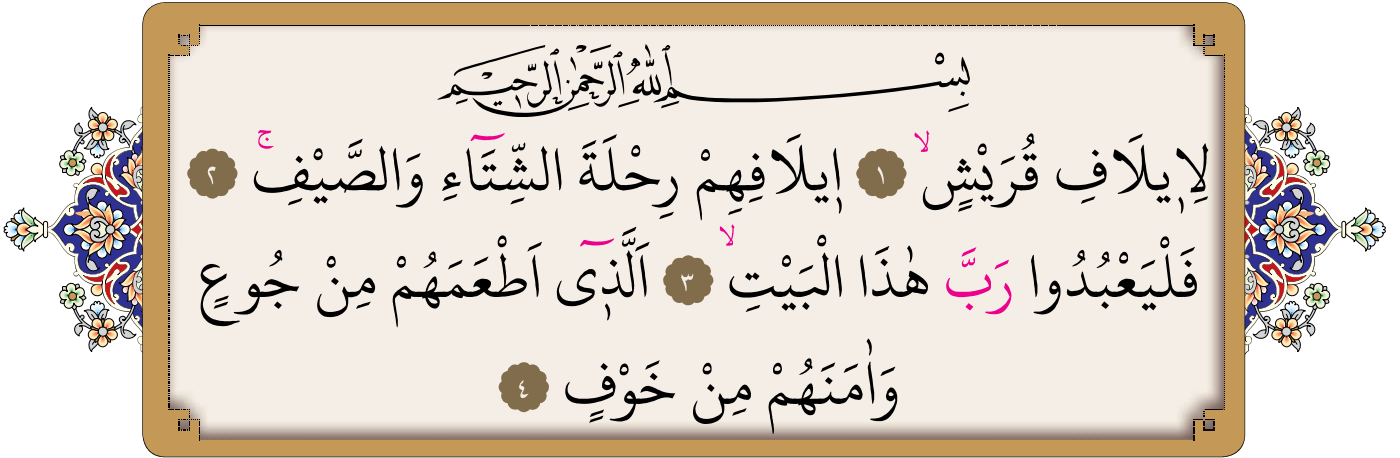 بِسْمِ ٱللّٰهِ ٱلرَّحْمٰنِ ٱلرَّحِيمِ
لِا۪يلَافِ قُرَيْشٍۙ ١ ا۪يلَافِهِمْ رِحْلَةَ الشِّتَٓاءِ وَالصَّيْفِۚ ٢
فَلْيَعْبُدُوا رَبَّ هٰذَا الْبَيْتِۙ ٣ اَلَّذ۪ٓى اَطْعَمَهُمْ مِنْ جُوعٍ
وَاٰمَنَهُمْ مِنْ خَوْفٍ ٤